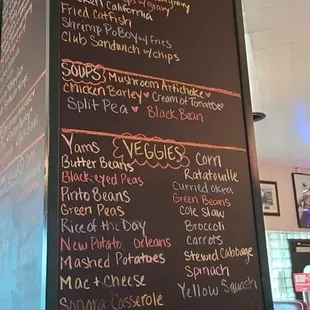 Chicken California
Fried Catfish
Shrimp PoBoy w/fries
Club Sandwich w/chips
SOUPS Mushroom Artichoke
Chicken Barley Cream of Tomato
Split Pea Black Bean
VEGGIES
Yams
Butter Beans
Black-eyed Peas
Pinto Beans
Green Peas
Rice of the Day
New Potato Orleans
Mashed Potatoes
Mac + Cheese
Sonora Casserole
Corn
Ratatouille
Curried Okra
Green Beans
Cole Slaw
Broccoli
Carrots
Stewed Cabbage
Spinach
Yellow Squash